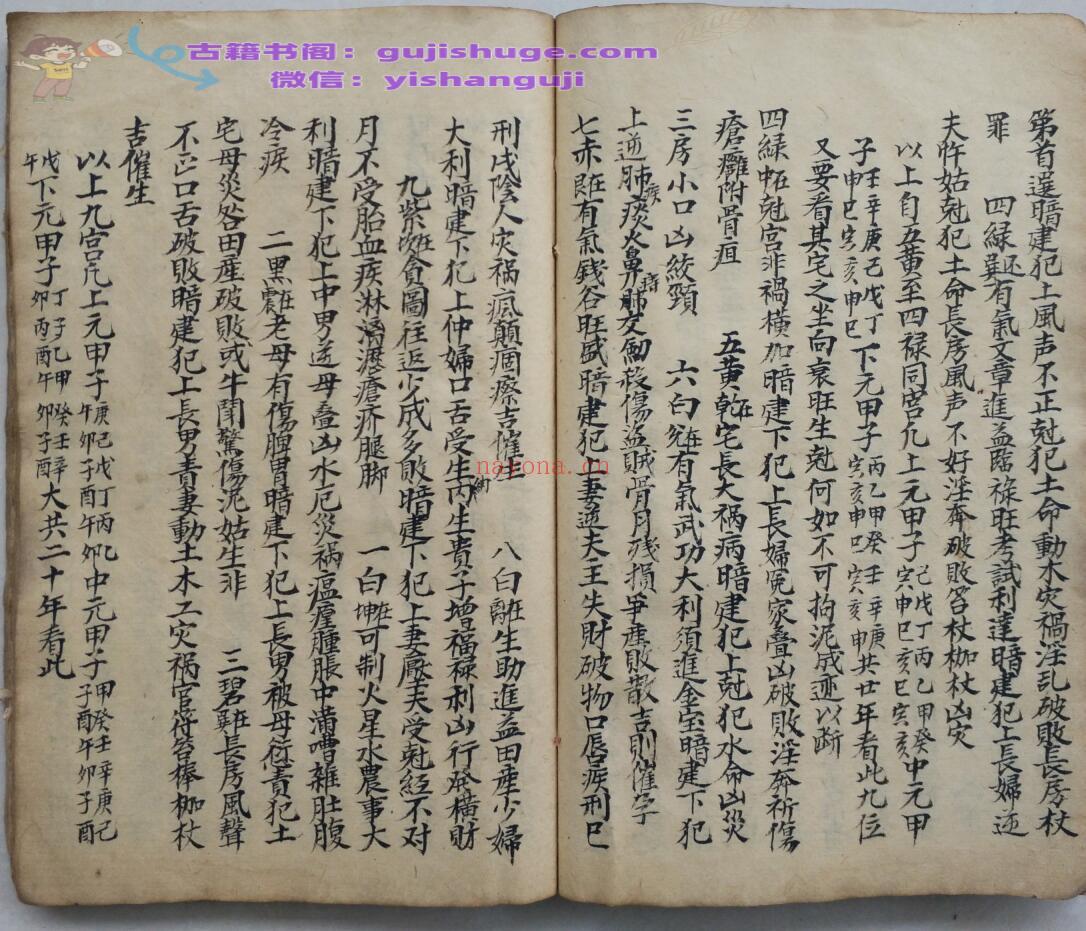 古籍书阁：gujishuge.com
微信：yishanguji
nayona.cn
第首邅暗建犯上風声不正尅犯土命動木灾禍淫乱破敗長房杖
罪 四綠還在巽有氣文章進益臨祿旺考試利達暗建犯上長婦逆
夫忤姑尅犯土命長房風声不好淫奔破敗笞杖枷杖凶灾
以上自五黄至四禄同宫凢上元甲子己戊丁丙乙甲癸中元甲
子壬辛庚己戊丁下元甲子丙乙甲癸壬辛庚共廿年看此九位
又要看其宅之坐向衰旺生尅何如不可拘泥成迹以断
四綠在中尅宮非禍横加暗建下犯上長婦冤家叠凶破敗淫奔祈傷
瘡癰附骨疽 五黄在乾宅長大禍病暗建犯上尅犯水命凶災
三房小口凶絞頸 六白在兊有氣武功大利須進金宝暗建下犯
上逆肺疾痰火鼻肺女劬殺傷盗賊骨月残損爭產敗散吉則催字
七赤在艮有氣錢谷旺盛暗建犯上妻逆夫主失財破物口唇疾刑巳
刑戌陰人灾禍瘋顛痼瘵吉催生 八白在離生助進益田產少婦
大利暗建下犯上仲婦口舌受生丙生貴子增福禄利山行發横財
九紫在坎貪圖往返少成多敗暗建下犯上妻壓夫受尅経不对
月不受胎血疾淋漓瀝瘡疥腿脚 一白在坤可制火星水農事大
利暗建下犯上中男逆母叠凶水厄災禍瘟瘴腫脹中滿嘈雜肚腹
冷疾 二黑在震老母有傷脾胃暗建下犯上長男被母愆責犯土
宅母災咎田產破敗或牛鬧驚傷泥姑生非 三碧在巽長房風聲
不正口舌破敗暗建犯上長男責妻動土木工灾禍官符笞棒枷杖
吉催生
以上九宫凢上元甲子庚己戊丁丙乙中元甲子甲癸壬辛庚己
下元甲子丁乙甲癸壬辛大共二十年看此